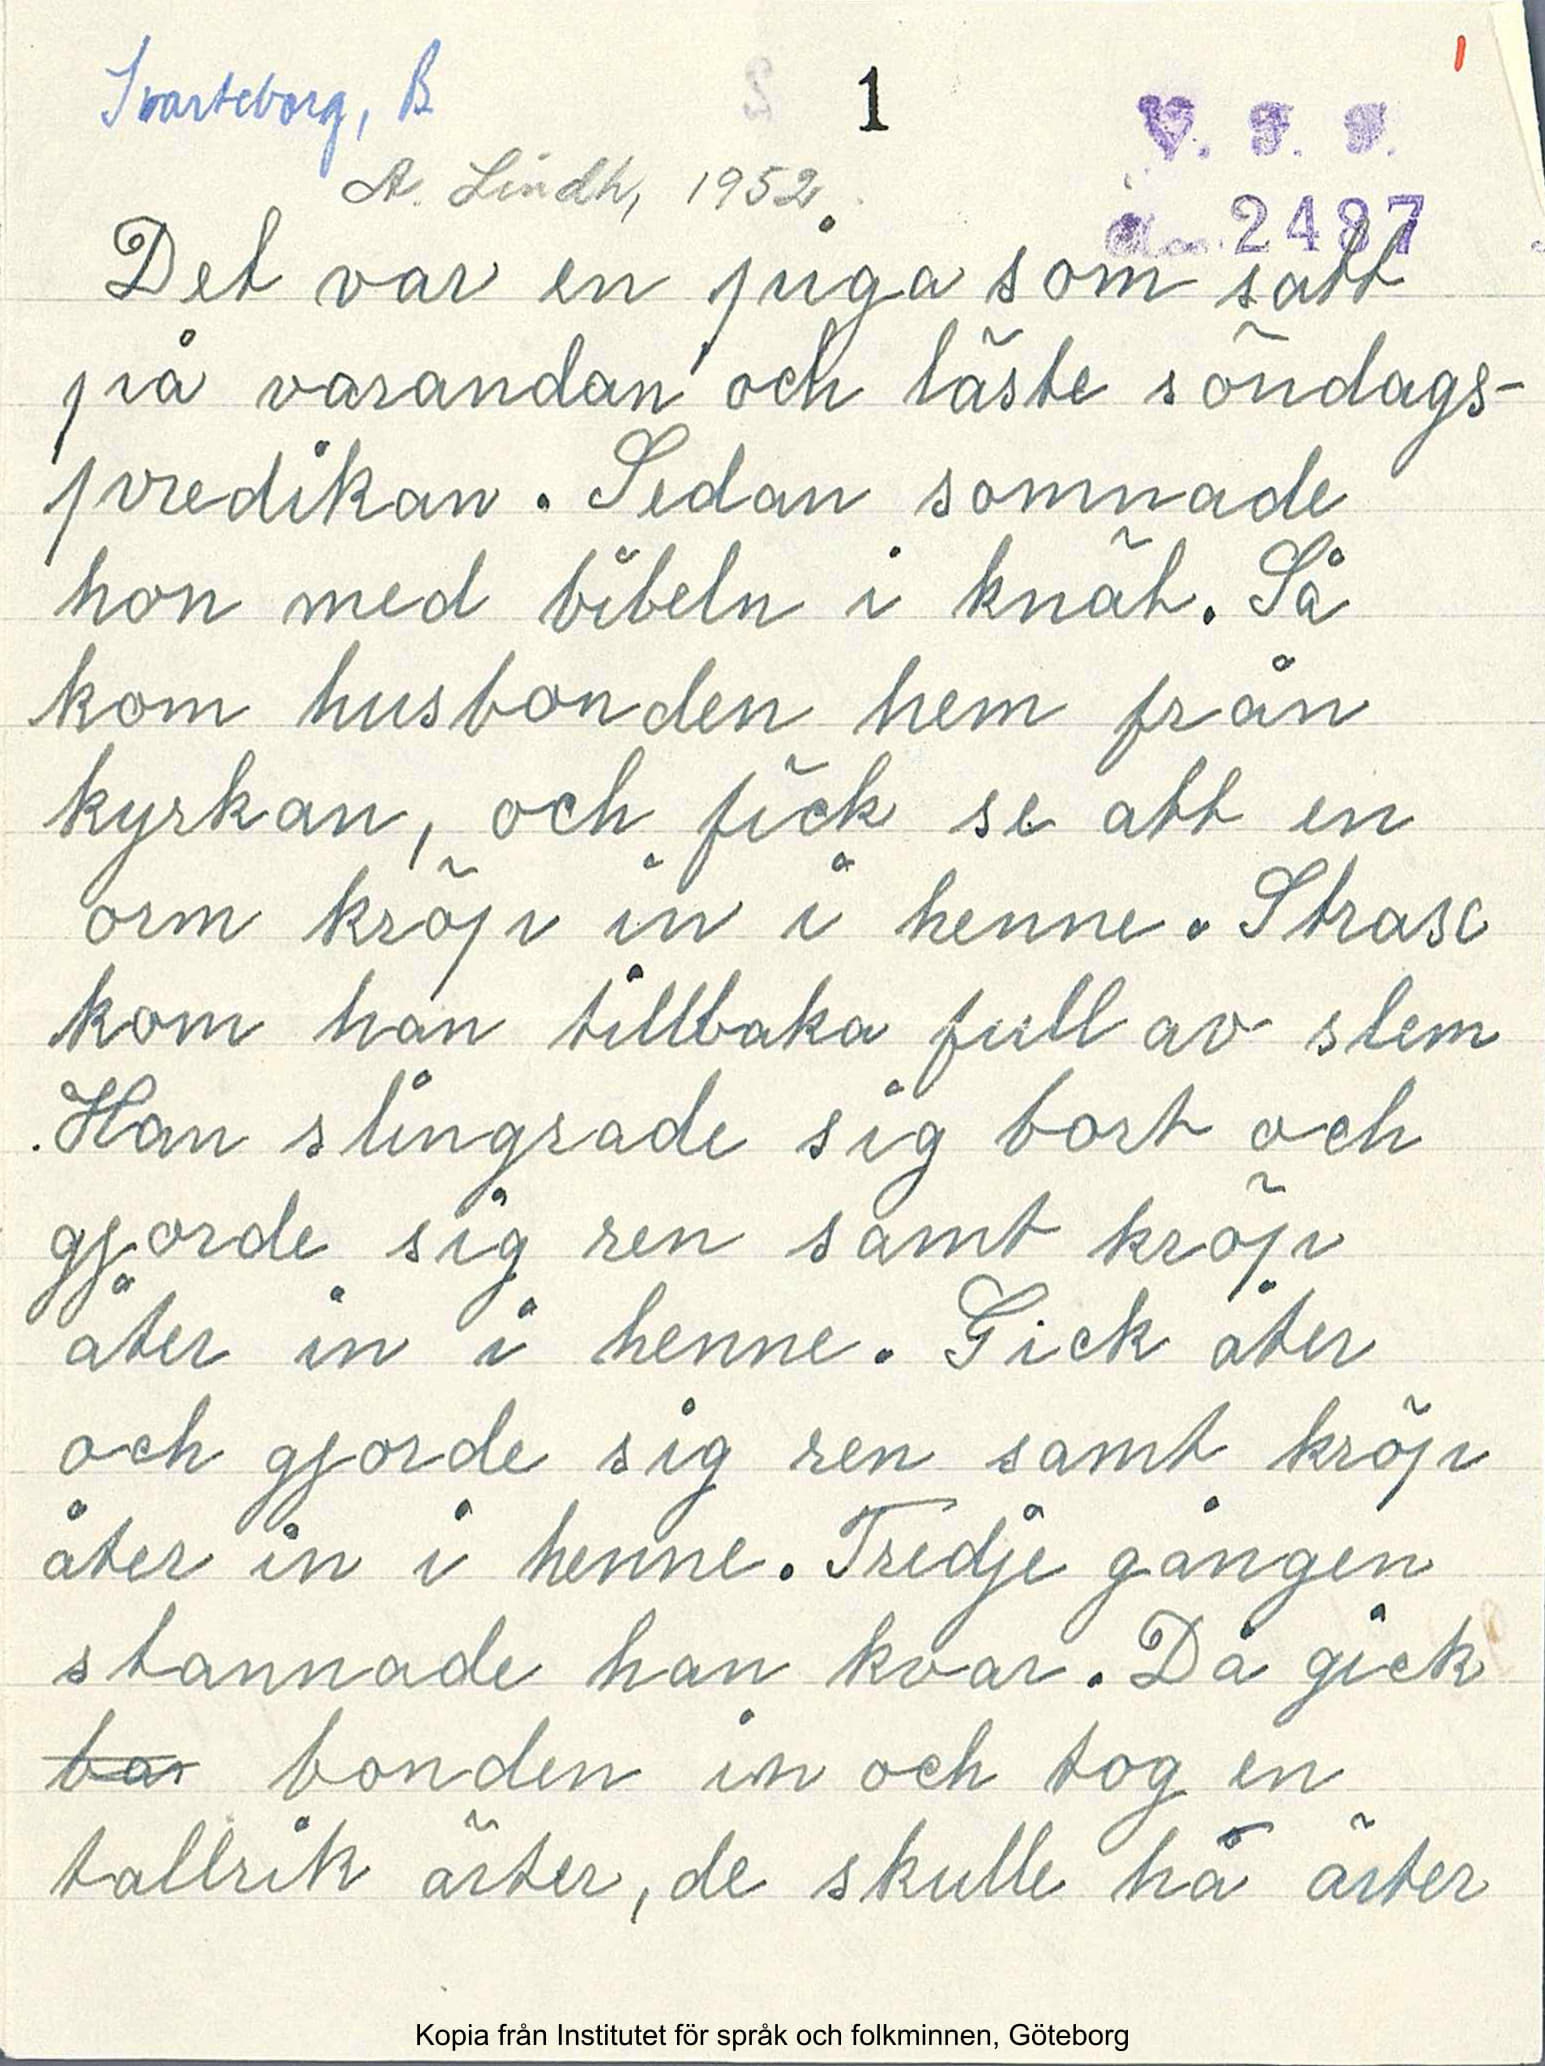 Svarteborg, B
1
1
V. F. F.
A. Lindh, 1952.
2487
Det var en piga som satt
på varandan och läste söndags-
predikan. Sedan somnade
hon med bibeln i knät. Så
kom husbonden hem från
kyrkan, och fick se att en
orm kröp in i henne. Strax
kom han tillbaka full av slem
. Han slingrade sig bort och
gjorde sig ren samt kröp
åter in i henne. Gick åter
och gjorde sig ren samt kröp
åter in i henne. Tredje gången
stannade han kvar. Då gick
bonden in och tog en
tallrik ärter, de skulle ha ärter
Kopia från Institutet för språk och folkminnen, Göteborg